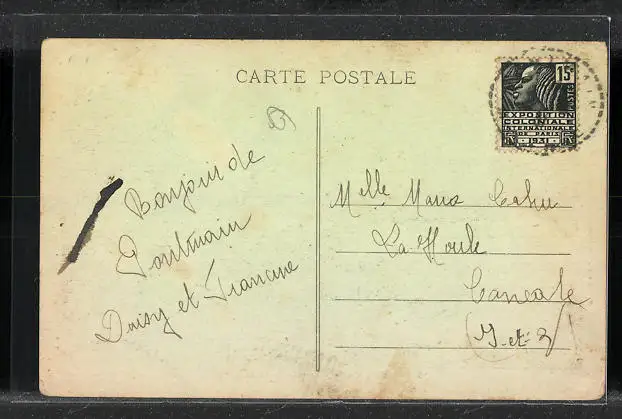 CARTE POSTALE
15c
POSTES
EXPOSITION
COLONIALE
INTERNATIONALE
DE PARIS
RF 1931 RF
Bonjour de
Pontmain
Daisy et Francine
Melle Maria Cahu
La Houle
Cancale
(I-et-V)